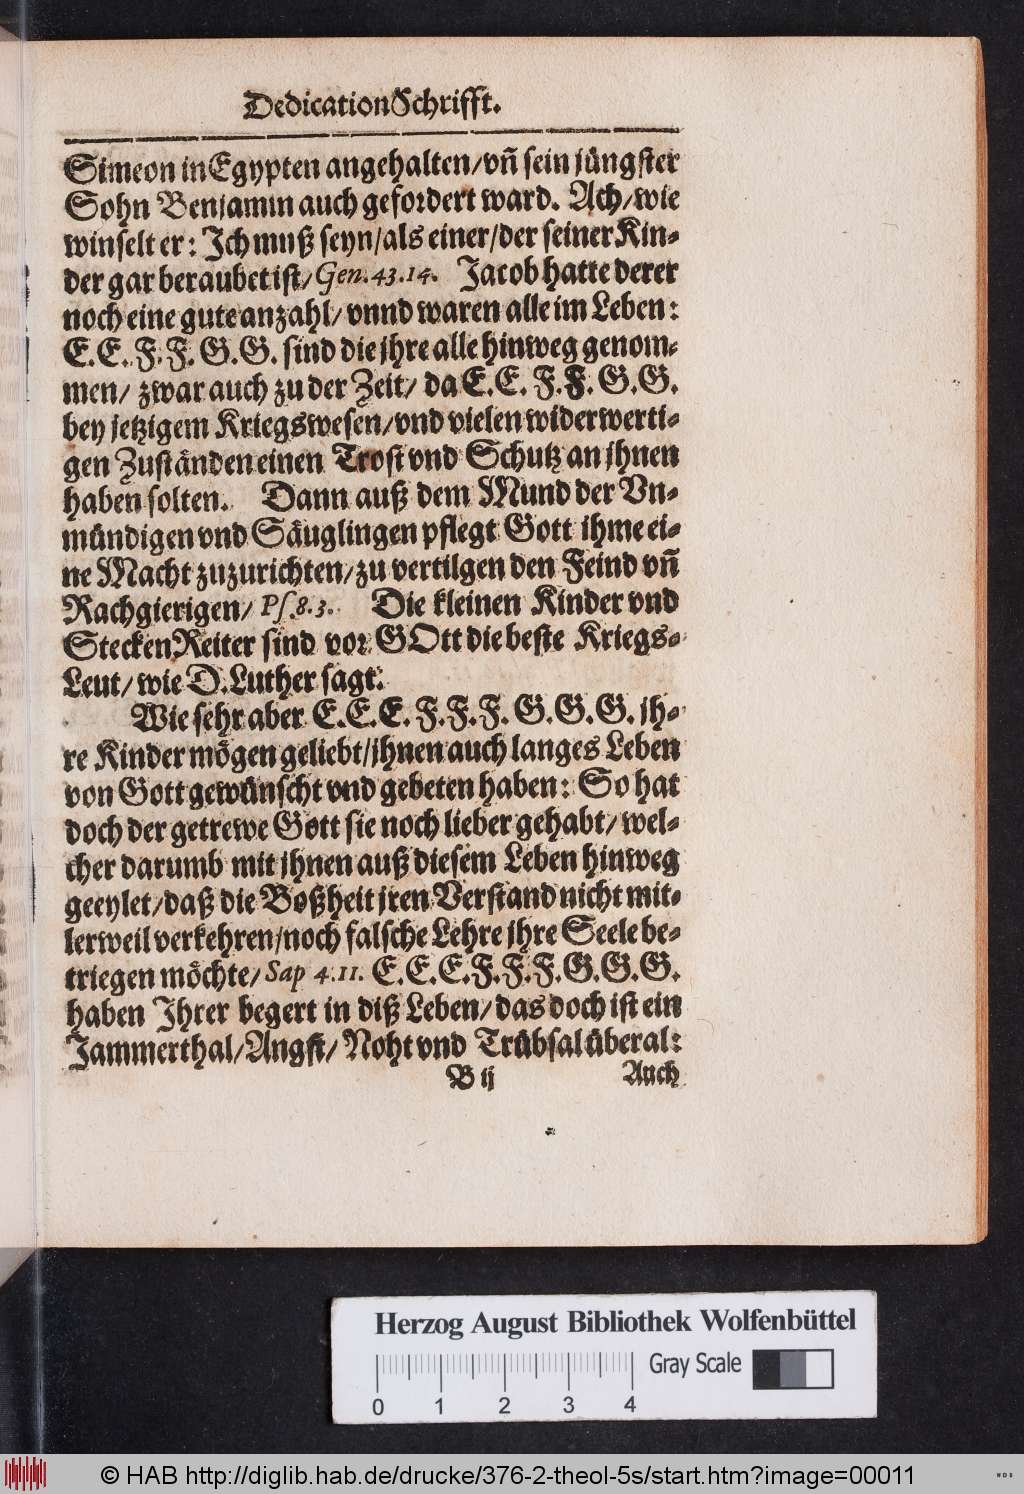 DedicationSchrifft.
Simeon in Egypten angehalten/vñ sein jüngster
Sohn Benjamin auch gefordert ward. Ach/wie
winselt er: Ich muß seyn/als einer/der seiner Kin-
der gar beraubet ist/Gen. 43. 14. Jacob hatte derer
noch eine gute anzahl/ vnnd waren alle im Leben:
E. E. F. F. G. G. sind die jhre alle hinweg genom-
men/ zwar auch zu der Zeit/ da E. E. F. F. G. G.
bey jetzigem Kriegswesen/vnd vielen widerwerti-
gen Zuständen einen Trost vnd Schutz an jhnen
haben solten. Dann auß dem Mund der Vn-
mündigen vnd Säuglingen pflegt Gott ihme ei-
ne Macht zuzurichten/zu vertilgen den Feind vñ
Rachgierigen/ Ps. 8. 3. Die kleinen Kinder vnd
SteckenReiter sind vor GOtt die beste Kriegs-
Leut/ wie D. Luther sagt.
Wie sehr aber E. E. E. F. F. F. G. G. G. jh-
re Kinder mögen geliebt/jhnen auch langes Leben
von Gott gewünscht vnd gebeten haben: So hat
doch der getrewe Gott sie noch lieber gehabt/ wel-
cher darumb mit jhnen auß diesem Leben hinweg
geeylet/daß die Boßheit jren Verstand nicht mit-
lerweil verkehren/noch falsche Lehre jhre Seele be-
triegen möchte/ Sap 4. 11. E. E. E. F. F. F. G. G. G.
haben Ihrer begert in diß Leben/das doch ist ein
Jammerthal/Angst/ Noht vnd Trübsal überal:
B ij Auch
Herzog August Bibliothek Wolfenbüttel
Gray Scale
0 1 2 3 4
© HAB http://diglib.hab.de/drucke/376-2-theol-5s/start.htm?image=00011